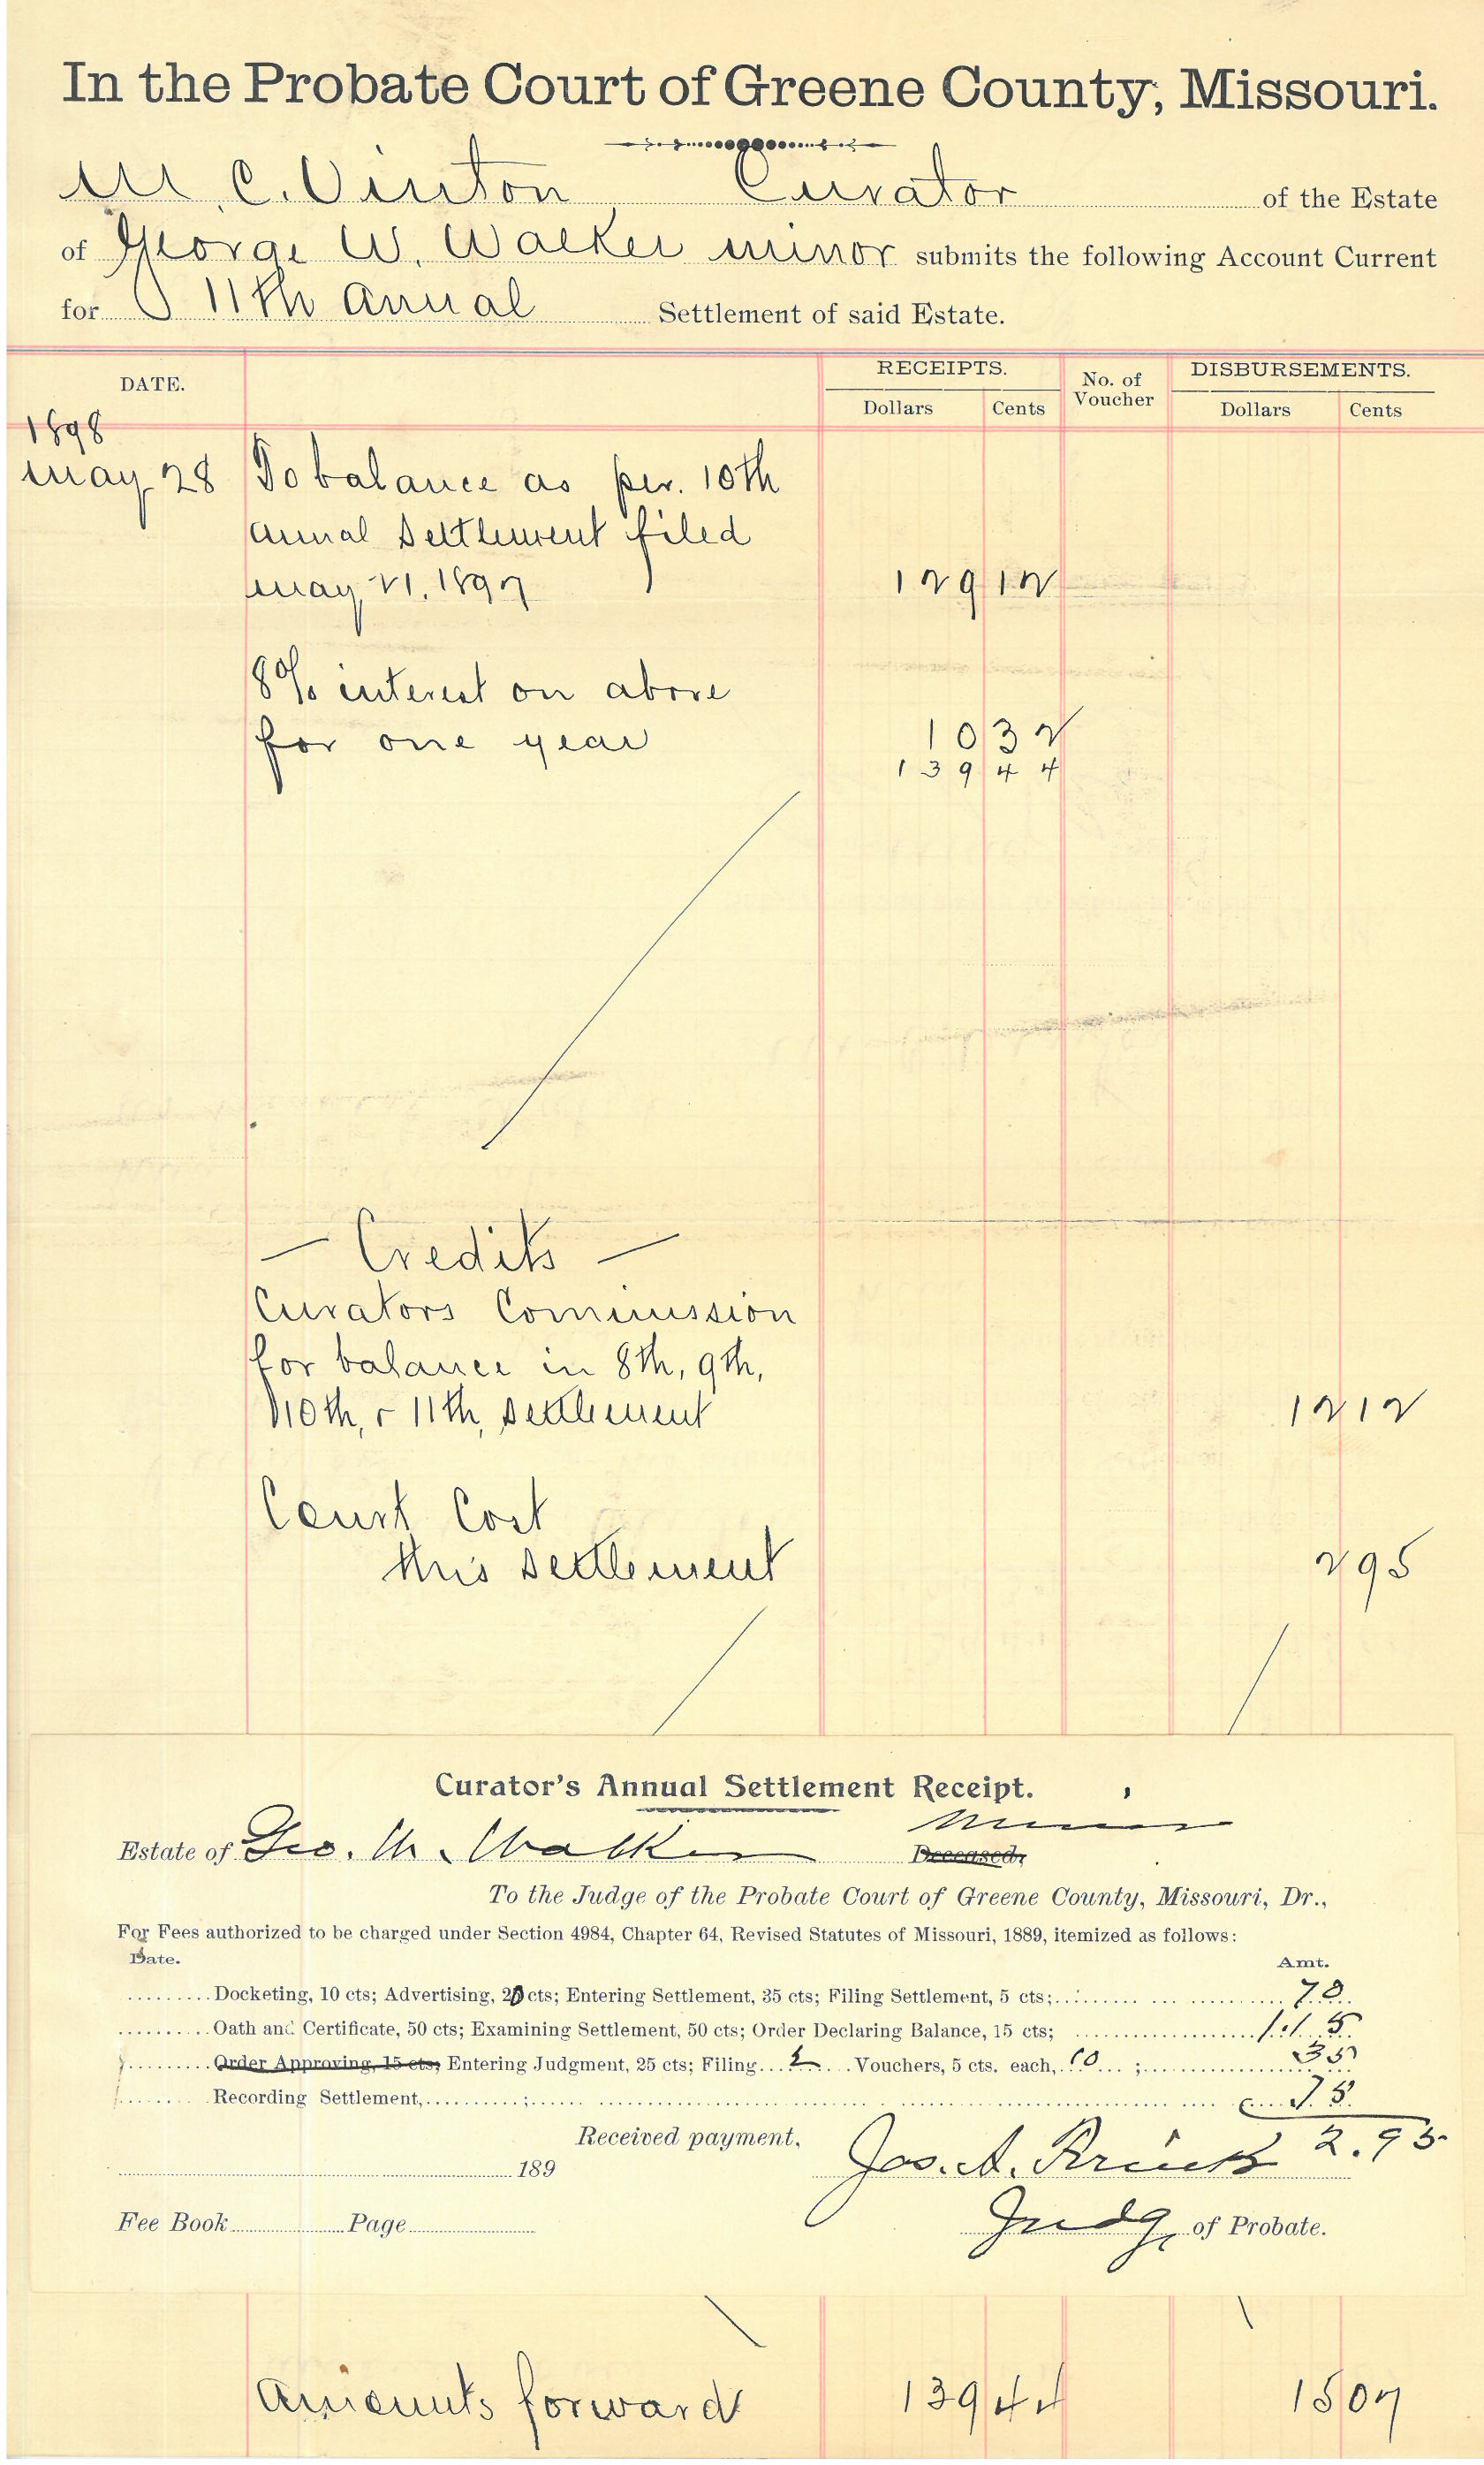 In the Probate Court of Greene County, Missouri.
M. C. Vinton Curator of the Estate
of George W. Walker minor submits the following Account Current
for 11th Anual Settlement of said Estate.
DATE. RECEIPTS. No. of Voucher DISBURSEMENTS.
Dollars Cents Dollars Cents
1898
May 28 To balance as per. 10th
Annal Settlement filed
May 21, 1897 129 12
8% interest on above
for one year 10 32
139 44
— Credits —
Curators Commission
for balance in 8th, 9th,
10th, & 11th, settlement 12 12
Court Cost
this settlement 2 95
Curator's Annual Settlement Receipt.
Minor
Estate of Geo. W. Walker Deceased,
To the Judge of the Probate Court of Greene County, Missouri, Dr.,
For Fees authorized to be charged under Section 4984, Chapter 64, Revised Statutes of Missouri, 1889, itemized as follows:
Date. Amt.
Docketing, 10 cts; Advertising, 20 cts; Entering Settlement, 35 cts; Filing Settlement, 5 cts; 70
Oath and Certificate, 50 cts; Examining Settlement, 50 cts; Order Declaring Balance, 15 cts; 1.15
Order Approving, 15 cts; Entering Judgment, 25 cts; Filing 2 Vouchers, 5 cts. each, 10 ; 35
Recording Settlement, ; 75
Received payment, 2.95
189 Jos. A.
Fee Book Page Judge of Probate.
Amounts forward 139 44 15 07